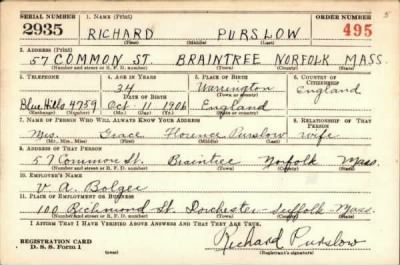 SERIAL NUMBER 1. NAME (Print) ORDER NUMBER 5
2935 RICHARD PURSLOW 495
(First) (Middle) (Last)
2. ADDRESS (Print)
57 COMMON ST. BRAINTREE NORFOLK MASS.
(Number and street or R. F. D. number) (Town) (County) (State)
3. TELEPHONE 4. AGE IN YEARS 5. PLACE OF BIRTH 6. COUNTRY OF CITIZENSHIP
34 Warrington England
DATE OF BIRTH (Town or county)
Blue Hills 4759 Oct 11 1906 England
(Exchange) (Number) (Mo.) (Day) (Yr.) (State or country)
7. NAME OF PERSON WHO WILL ALWAYS KNOW YOUR ADDRESS 8. RELATIONSHIP OF THAT PERSON
Mrs. Grace Florence Purslow wife
(Mr., Mrs., Miss) (First) (Middle) (Last)
9. ADDRESS OF THAT PERSON
57 Common St. Braintree Norfolk Mass.
(Number and street or R. F. D. number) (Town) (County) (State)
10. EMPLOYER'S NAME
V. A. Bolger
11. PLACE OF EMPLOYMENT OR BUSINESS
100 Richmond St. Dorchester - Suffolk - Mass.
(Number and street or R. F. D. number) (Town) (County) (State)
I AFFIRM THAT I HAVE VERIFIED ABOVE ANSWERS AND THAT THEY ARE TRUE.
REGISTRATION CARD
D. S. S. Form 1 Richard Purslow
(over) (Registrant's signature)